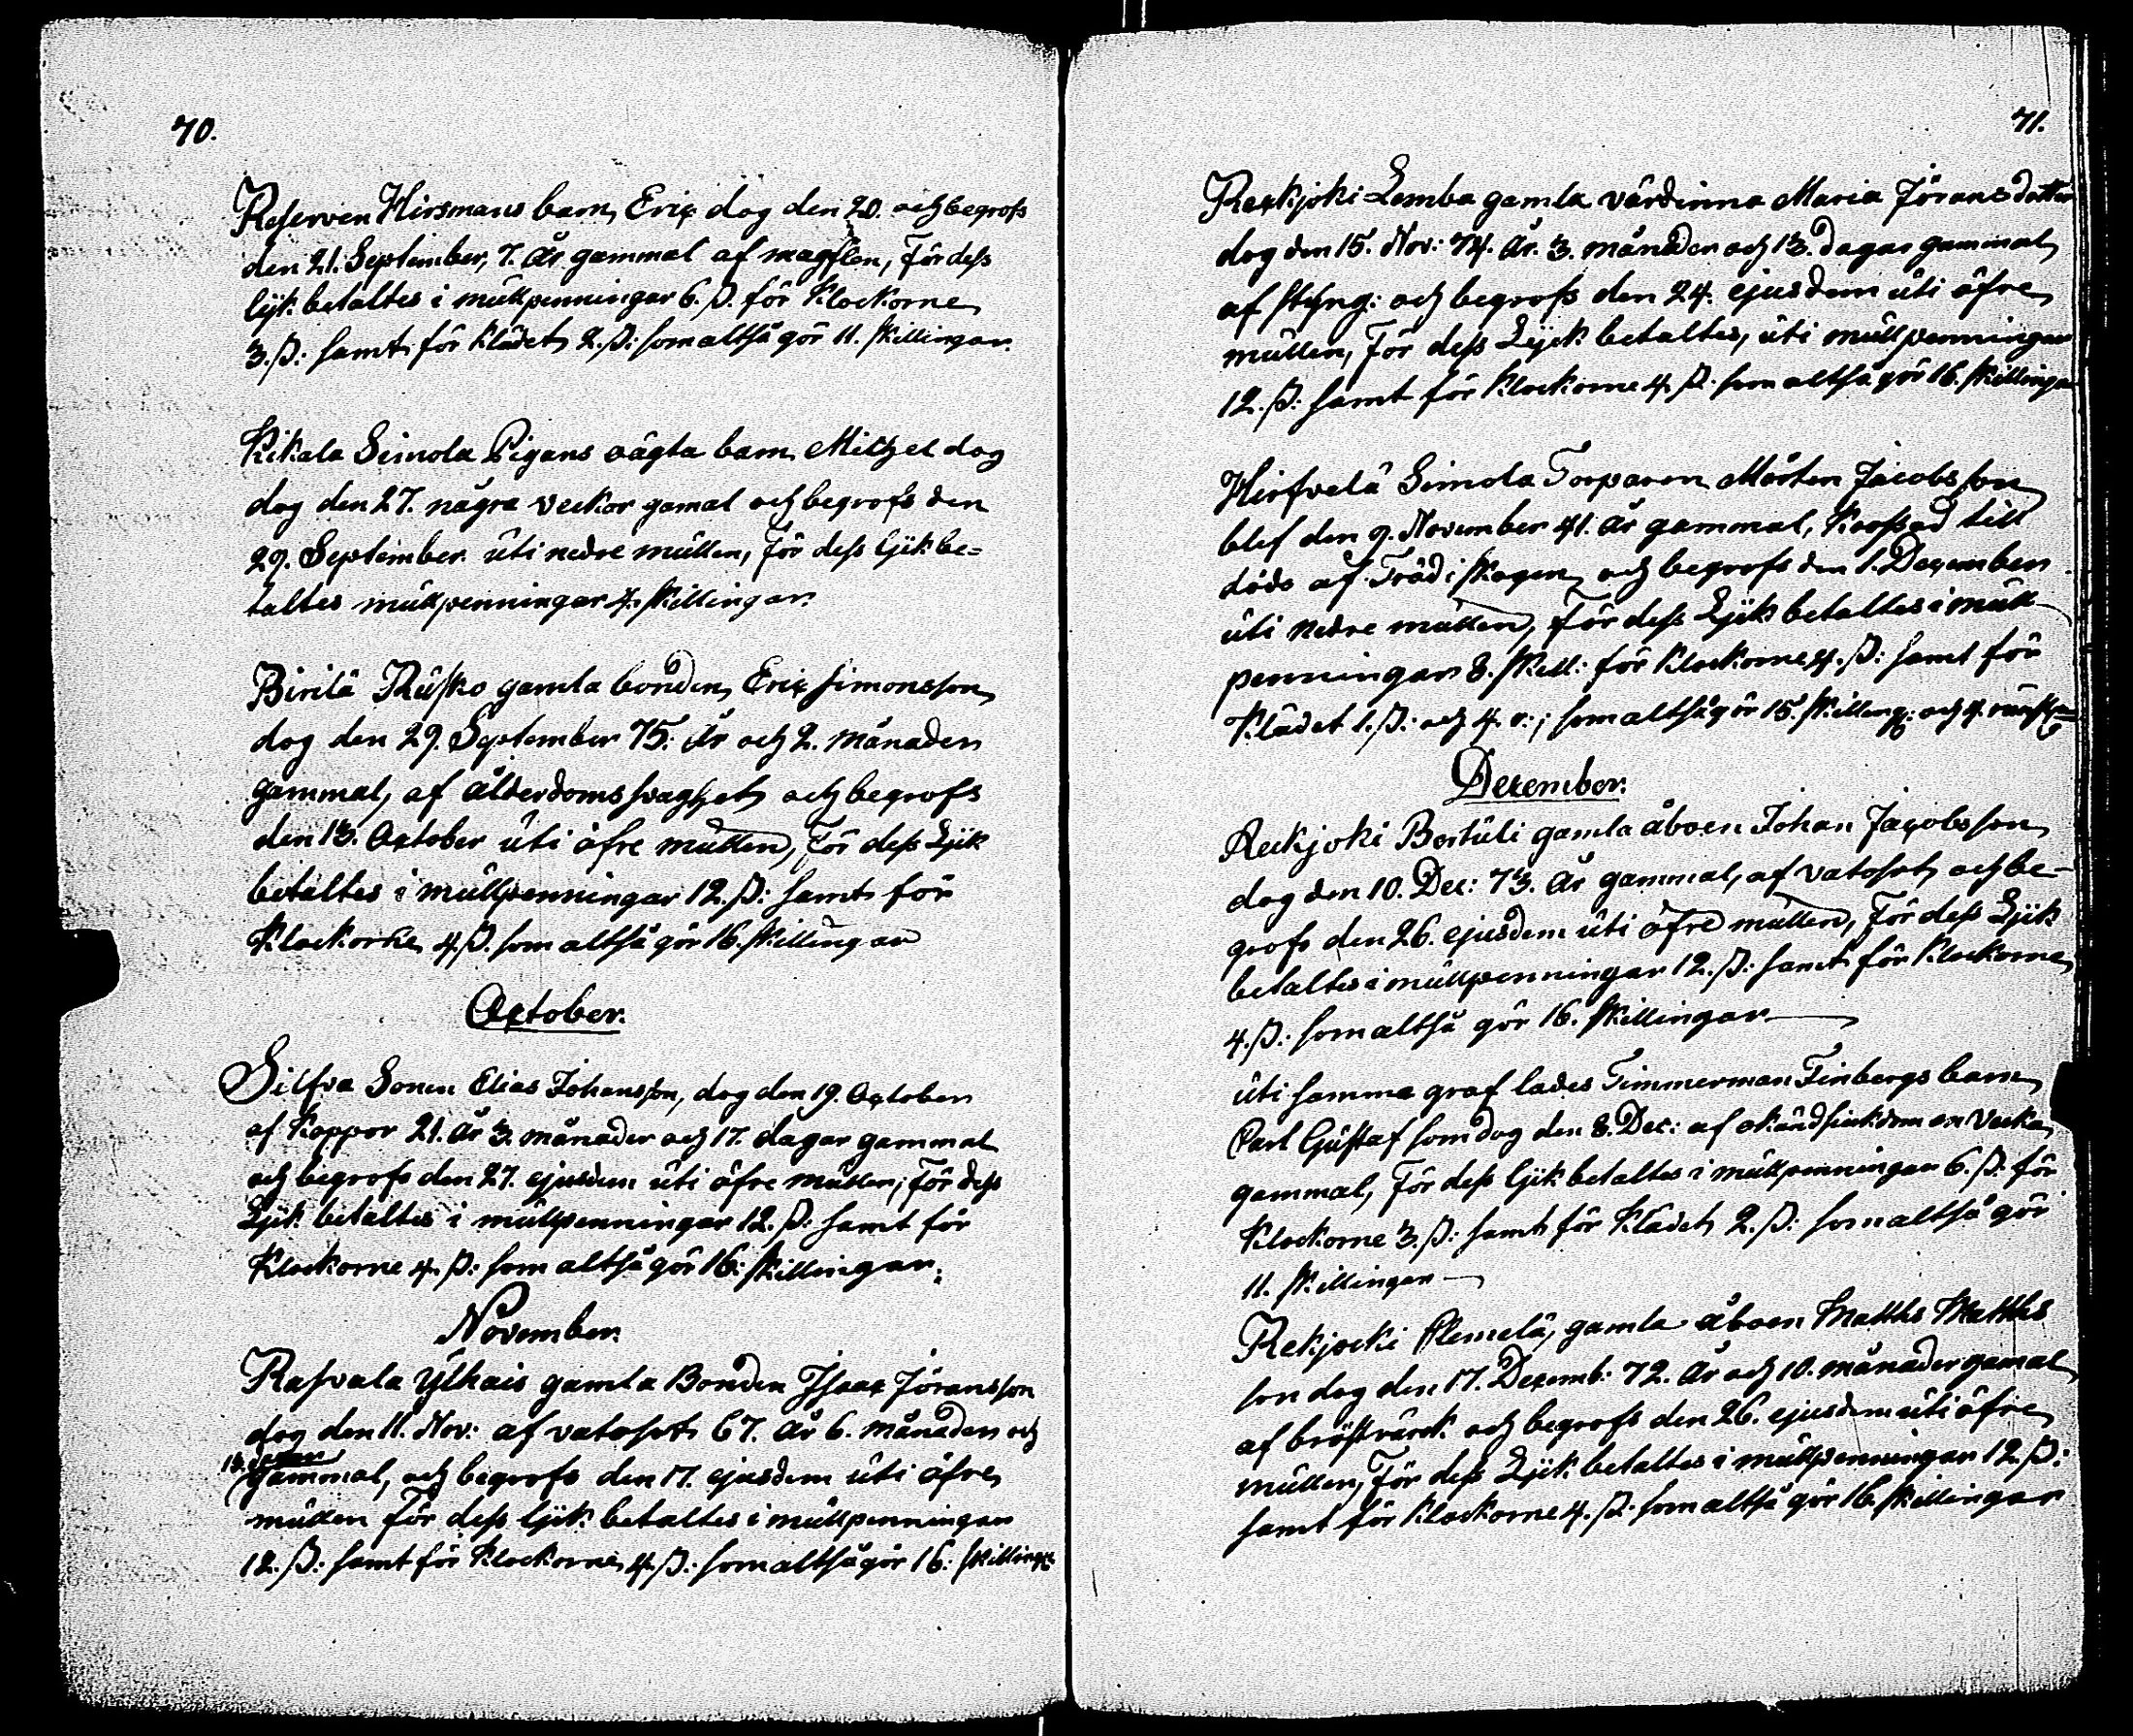 70.
Reserven Hirsmans barn, Eric dog den 20. och begrofs
den 21. September, 7. År gammal af magsten, För dess
lijk betaltes i mullpenningar 6. ß. för Klockorne
3. ß: samt för Klädet 2. ß: som altså gör 11. skillingar.
Kikala Simola Pigans oägta barn Michel dog
dog den 27. några veckor gamal och begrofs den
29. September uti nedre mullen, för dess lijk be=
taltes mullpenningar 4. skillingar.
Birilä Rusko gamla bonden, Eric Simonsson
dog den 29. September 75. År och 2. månader
gammal, af ålderdomssvaghet och begrofs
den 13. October uti öfre mullen, För dess Lijk
betaltes i mullpenningar 12. ß: samt för
Klockorne 4. ß. som altså gör 16. skillingar
October.
Silfva Sonen Elias Johansson, dog den 19. October
af Koppor 21. År 3. månader och 17. dagar gammal
och begrofs den 27. ejusdem uti öfre mullen; För dess
Lijk betaltes i mullpenningar 12. ß: samt för
Klockorne 4. ß: som altså gör 16: skillingar.
November.
Rasvala Ylhais gamla Bonden Isaac Jöransson
dog den 11. Nov: af vatosot 67. År 6. månader och
gammal, och begrofs den 17. ejusdem uti öfre
mullen För dess lijk betaltes i mullpenningar
12. ß: samt för Klockorne 4. ß: som altså gör 16: skilling:
71.
Reckjoki Lemba gamla värdinna Maria Jöransdotter
dog den 15. Nov: 74. År. 3. månader och 13. dagar gammal
af styng: och begrofs den 24. ejusdem uti öfre
mullen, För dess Lijk betaltes, uti mullpenningar
12. ß: samt för Klockorne 4. ß. som altså gör 16. skillingar
Hirfvelä Simola Torparen Mårten Jacobsson
blef den 9. November 41. År gammal, Krossad till
döds af Träd i skogen och begrofs den 1. December
uti nedre mullen, För dess Lijk betaltes i mull
penningar 8. skill: för Klockorne 4. ß: samt för
Klädet 1. ß: och 4. r:; som altså gör 15. skilling: och 4. runst:
December.
Reckjoki Bertuli gamla åboen Johan Jacobsson
dog den 10. Dec: 73. År gammal, af vatosot och be-
grofs den 26. ejusdem uti öfre mullen, För dess Lijk
betaltes i mullpenningar 12. ß: samt för Klockorne
4. ß: som altså gör 16. skillingar
uti samma graf lades Timmerman Finbergs barn
Carl Gustaf som dog den 8. Dec: af okänd siukdom en Vecka
gammal, För dess lijk betaltes i mullpenningar 6. ß: för
Klockorne 3. ß: samt för Klädet 2. ß: som altså gör
11. skillingar
Rekjocki Clemelä, gamla åboen Matths Matths
son dog den 17. Decemb: 72. År och 10. månader gamal
af bröstvärck och begrofs den 26. ejusdem uti öfre
mullen, För dess Lijk betaltes i mullpenningar 12. ß:
samt för Klockorne 4. ß: som altså gör 16. skillingar